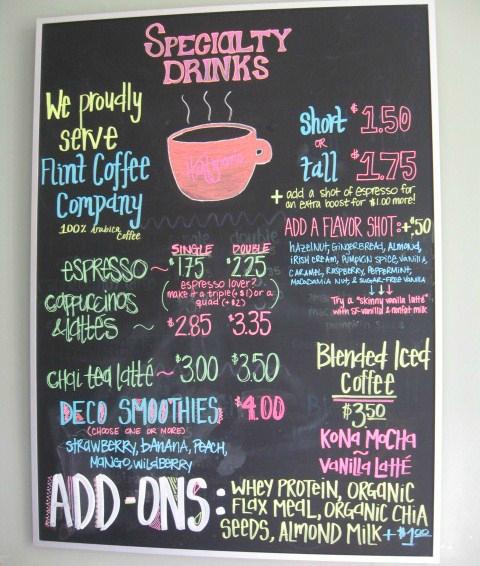 SPECIALTY
DRINKS
We proudly
serve
Flint Coffee
Company
100% Arabica
Coffee
short $1.50
OR
tall $1.75
+ add a shot of espresso for
an extra boost for $1.00 more!
ADD A FLAVOR SHOT: +$.50
HAZELNUT, GINGERBREAD, ALMOND,
IRISH CREAM, PUMPKIN SPICE, VANILLA,
CARAMEL, RASPBERRY, PEPPERMINT,
MACADAMIA NUT, 2 SUGAR-FREE VANILLA
Try a "skinny vanilla latte"
with SF-vanilla & nonfat milk
SINGLE DOUBLE
ESPRESSO ~ $1.75 $2.25
(espresso lover?
make it a triple (+$1) or a
quad (+$2))
cappuccinos
& lattés ~ $2.85 $3.35
chai tea latté ~ $3.00 $3.50
DECO SMOOTHIES $4.00
(CHOOSE ONE OR MORE)
STRAWBERRY, BANANA, PEACH,
MANGO, WILDBERRY
Blended Iced
Coffee
$3.50
KONA MOCHA
~
VANILLA LATTÉ
ADD-ONS: WHEY PROTEIN, ORGANIC
FLAX MEAL, ORGANIC CHIA
SEEDS, ALMOND MILK +$1.00